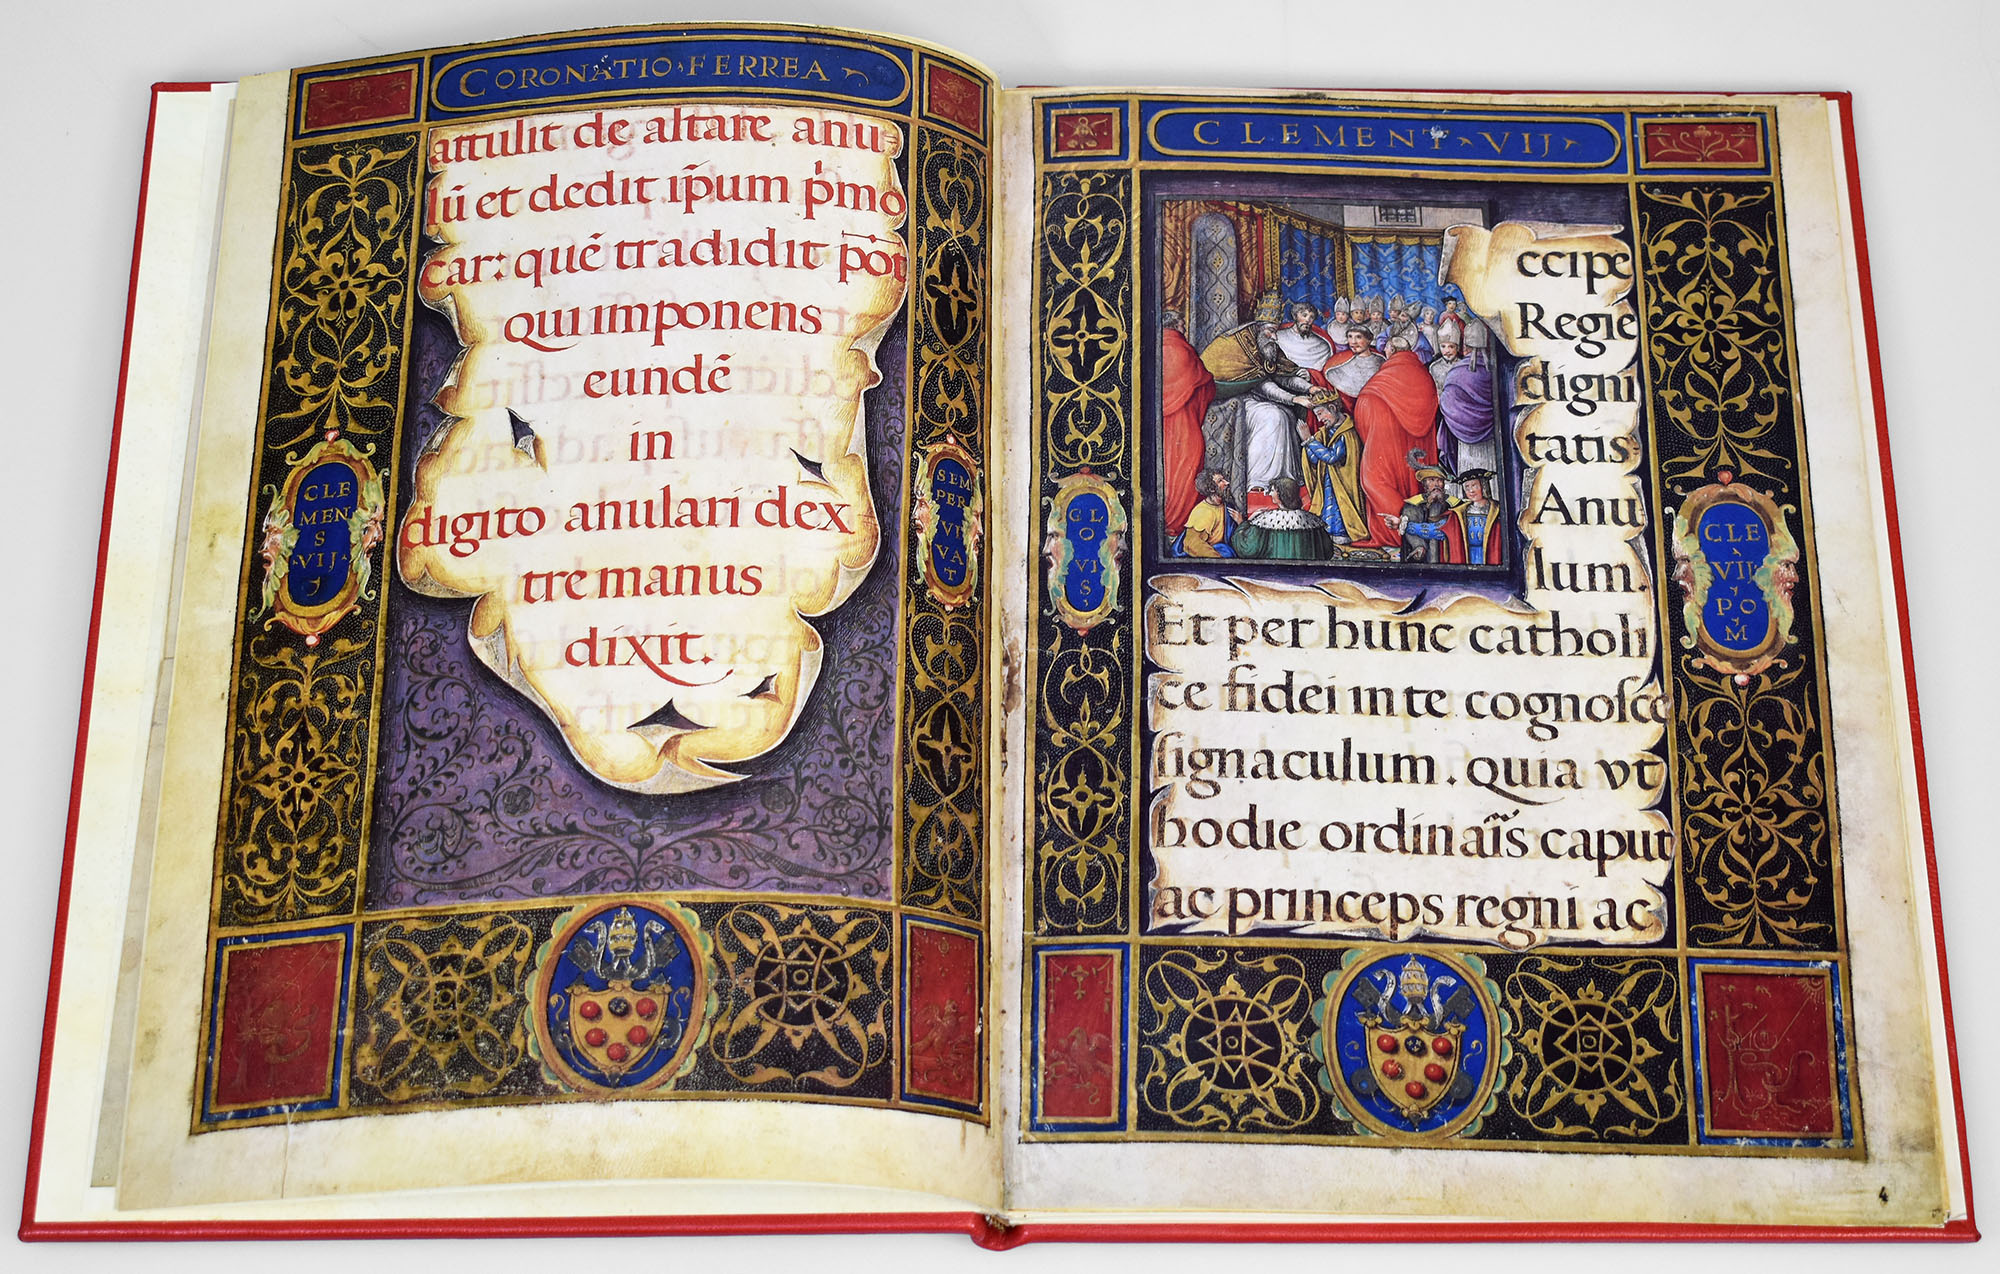 CORONATIO · FERREA
attulit de altare anu-
lū et dedit ip̄um p̍mo
car: quē tradidit pōt
qui imponens
eundē
in
digito anulari dex
tre manus
dixit.
CLE
MEN
S
VIJ
SEM
PER
VI
VA
T
CLEMENT · VIJ ·
ccipe
Regie
digni
tatis
Anu
lum.
Et per hunc catholi
ce fidei in te cognosce
signaculum. quia vt
hodie ordinar̃is caput
ac princeps regni ac
GL
O
VI
S
CLE
VIJ
PO
M
4